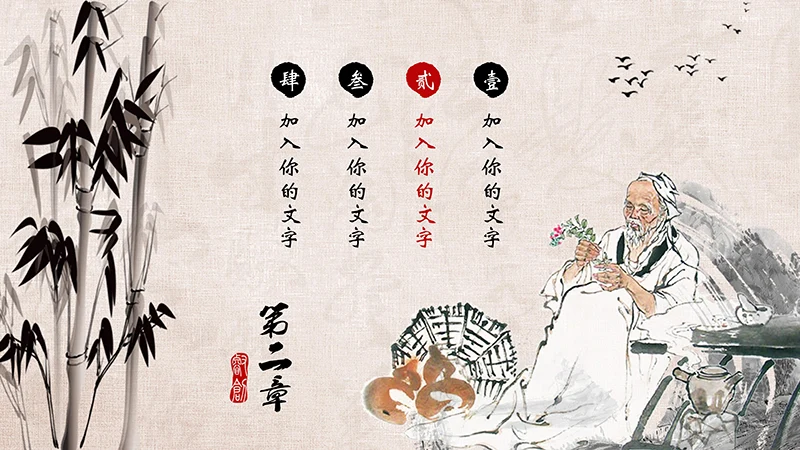 壹
加入你的文字
贰
加入你的文字
叁
加入你的文字
肆
加入你的文字
第二章